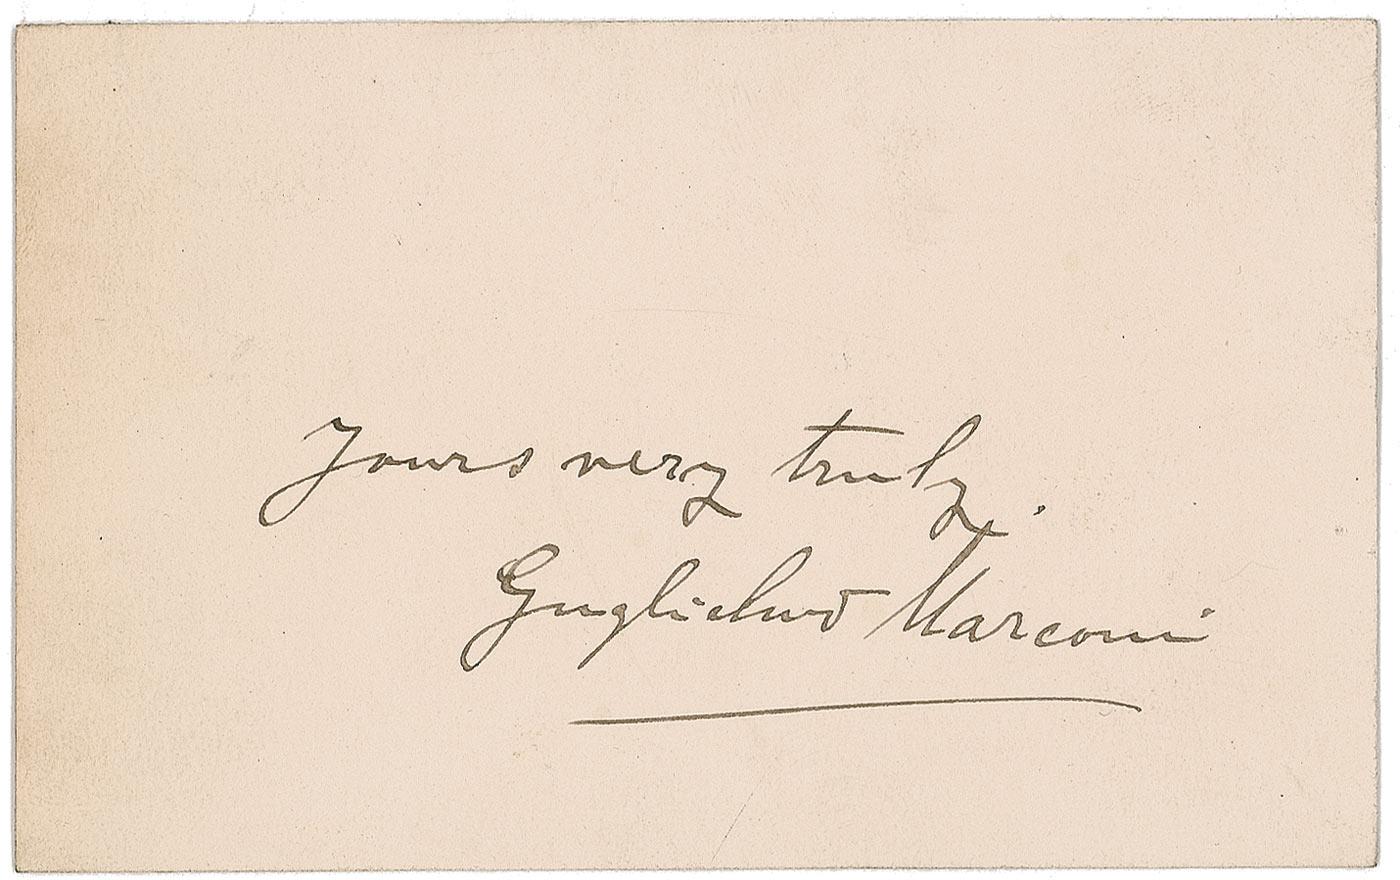 Yours very truly.
Guglielmo Marconi